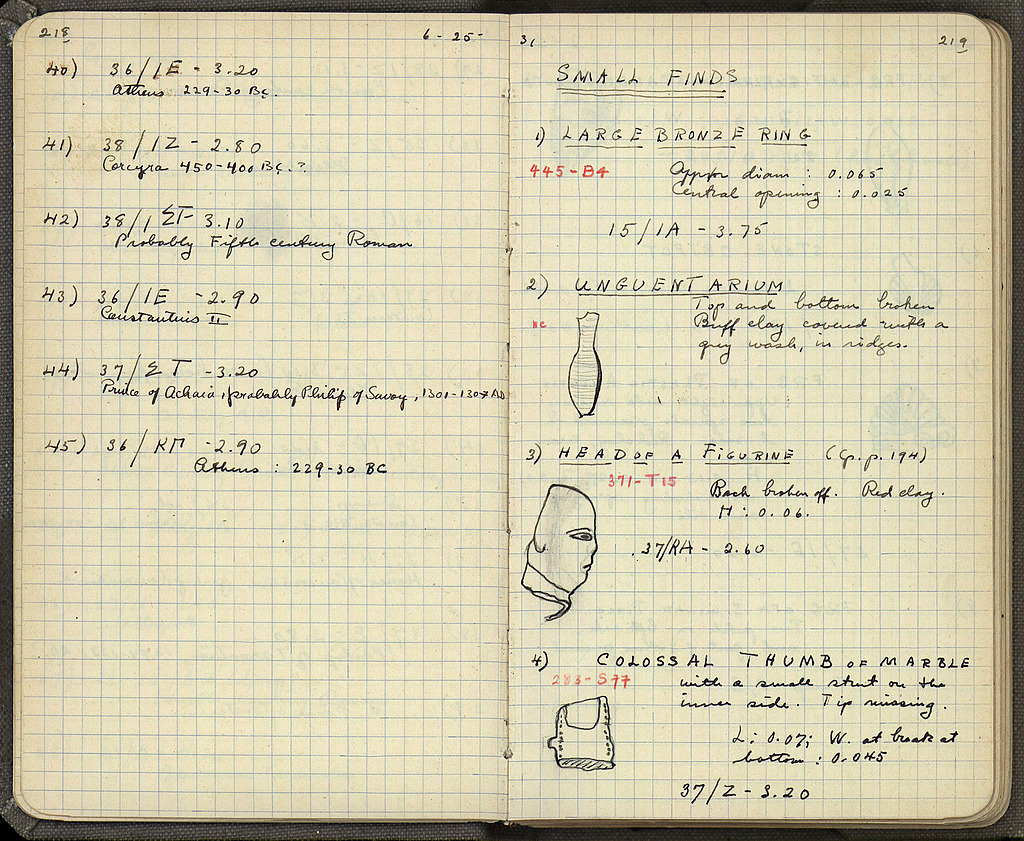 218
6 - 25 - 31
40) 36/ΙΕ - 3.20
Athens 229-30 BC.
41) 38/ΙΖ - 2.80
Corcyra 450-400 BC.?
42) 38/ΙΣΤ - 3.10
Probably Fifth century Roman
43) 36/ΙΕ - 2.90
Constantius II
44) 37/ΣΤ - 3.20
Prince of Achaia, probably Philip of Savoy, 1301-1307 AD
45) 36/ΚΓ - 2.90
Athens : 229-30 BC
219
SMALL FINDS
1) LARGE BRONZE RING
445-B4
Appr diam : 0.065
Central opening : 0.025
15/ΙΑ - 3.75
2) UNGUENTARIUM
NC
Top and bottom broken
Buff clay covered with a
grey wash, in ridges.
3) HEAD OF A FIGURINE (Cp. p. 194)
371-T15
Back broken off. Red clay.
H : 0.06.
37/ΚΑ - 2.60
4) COLOSSAL THUMB OF MARBLE
283-S77
with a small strut on the
inner side. Tip missing.
L: 0.07; W. at break at
bottom : 0.045
37/Ζ - 3.20